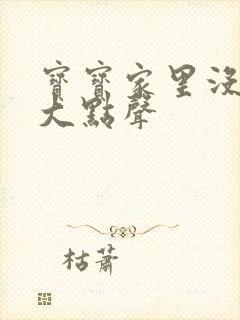 寶寶家里沒
大點聲
枯蕭